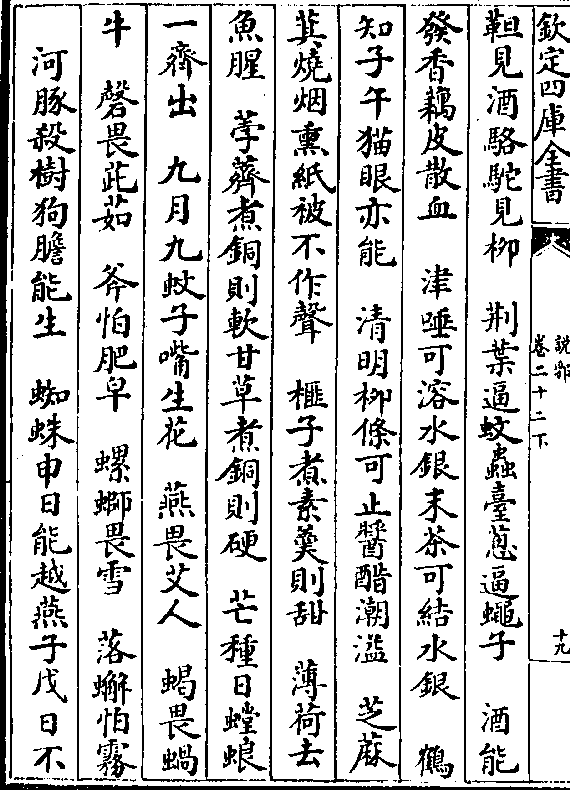 欽定四庫全書
說郛
卷二十二下
十九
靼見酒駱駝見柳　荆葉逼蚊蟲臺葱逼蠅子　酒能
發香藕皮散血　津唾可溶水銀末茶可結水銀　鶴
知子午猫眼亦能　清明柳條可止醬醋潮溢　芝蔴
萁燒烟熏紙被不作聲　榧子煮素羮則甜　薄荷去
魚腥　荸薺煮銅則軟甘草煮銅則硬　芒種日螳蜋
一齊出　九月九蚊子嘴生花　燕畏艾人　蝎畏蝸
牛　磬畏茈茹　斧怕肥皁　螺螄畏雪　落蠏怕霧
河豚殺樹狗膽能生　蜘蛛申日能越燕子戊日不